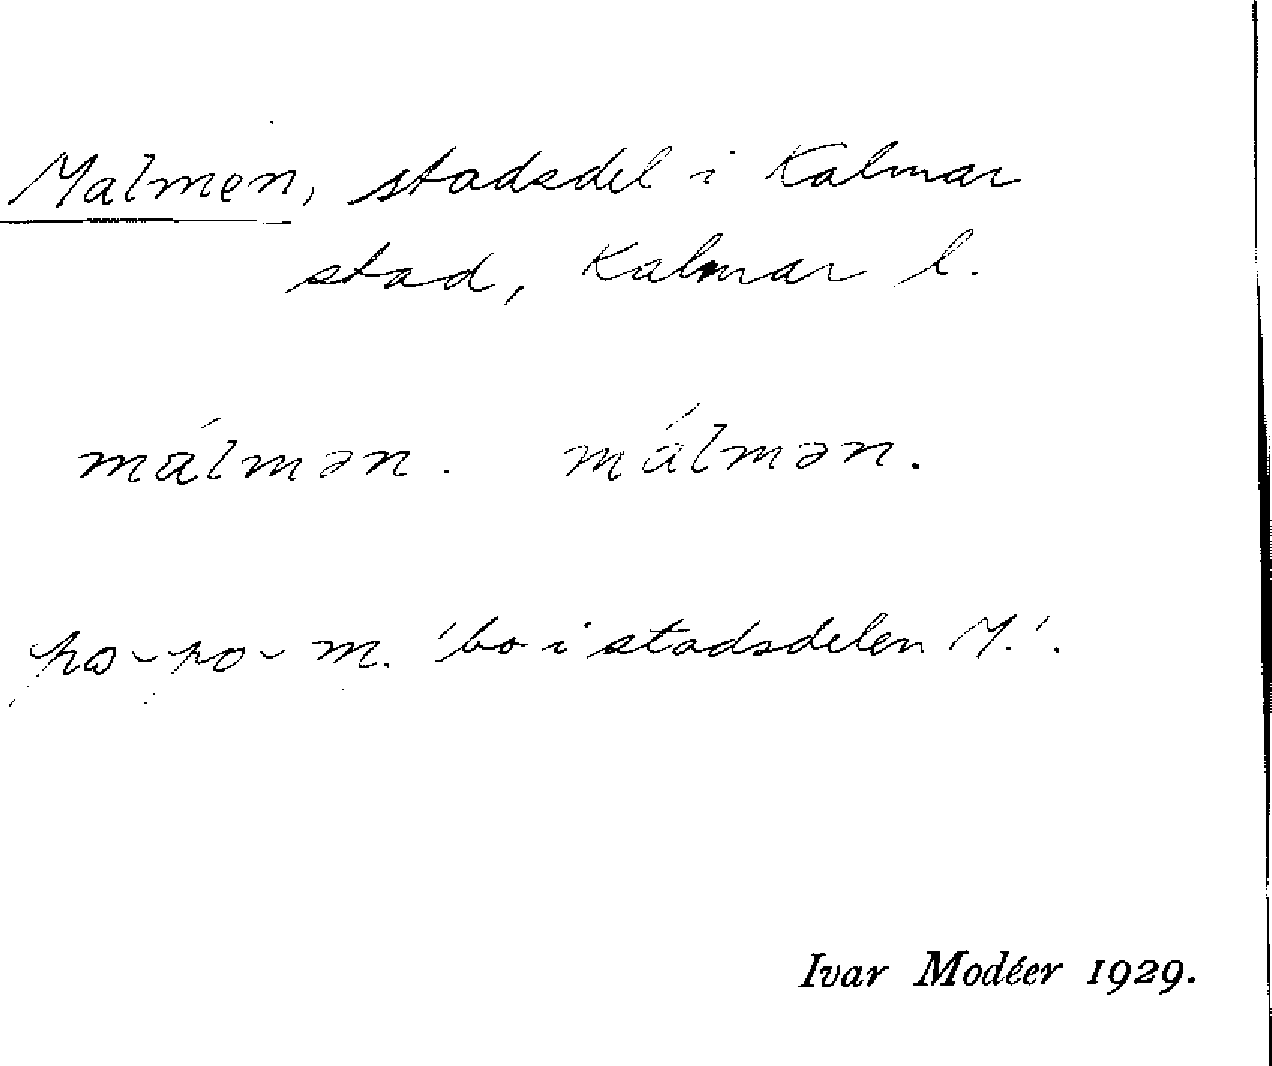 Malmen, stadsdel i Kalmar
stad, Kalmar l.
málmən. málmən.
m. 'bo i stadsdelen M.'.
Ivar Modéer 1929.